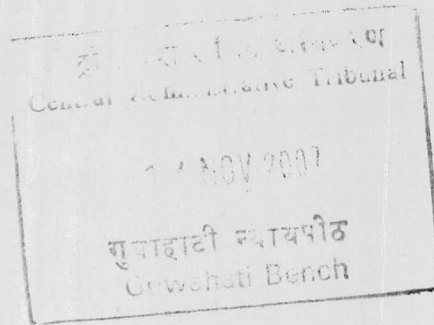 Central Administrative Tribunal
NOV 2007
गुवाहाटी न्यायपीठ
Guwahati Bench